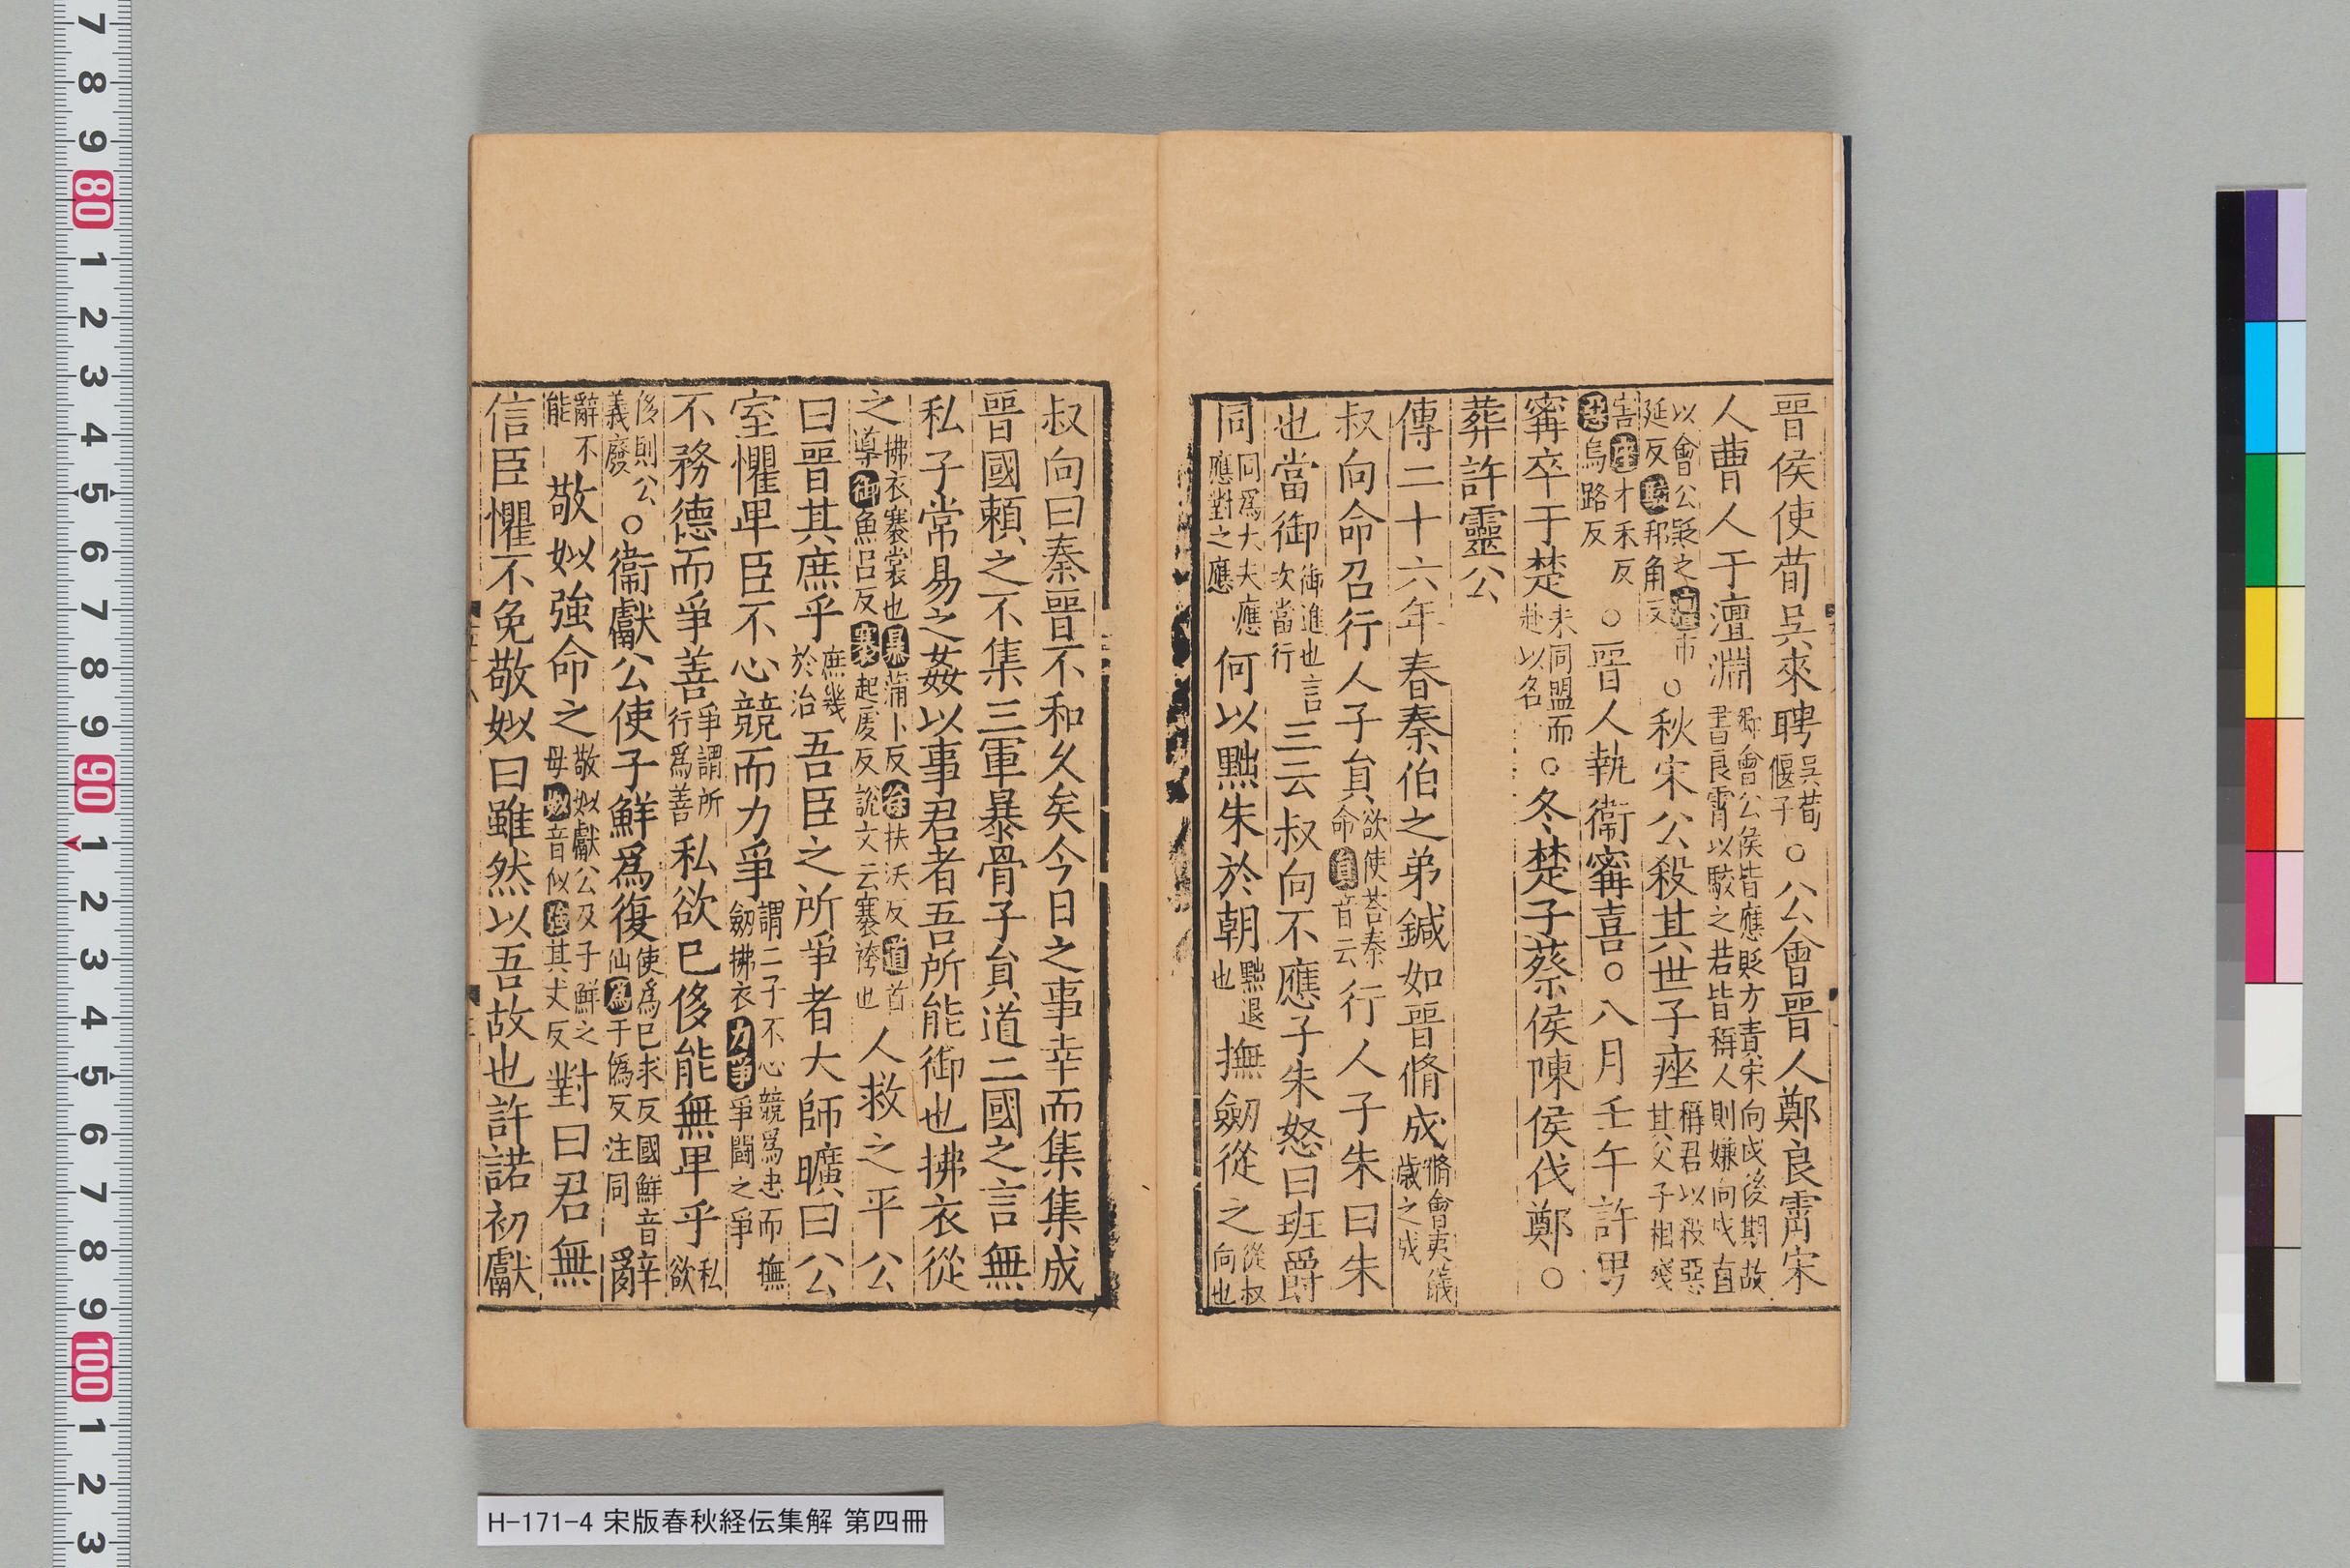 晉侯使荀吳來聘吳荀偃子○公會晉人鄭良霄宋
人曹人于澶淵卿會公侯皆應貶方責宋向戌後期故書良霄以駮之若皆稱人則嫌向戌直
以會公貶之澶市延反駮邦角反○秋宋公殺其世子痤稱君以殺惡其父子相殘
害痤才禾反惡烏路反○晉人執衞甯喜○八月壬午許男
甯卒于楚未同盟而赴以名○冬楚子蔡侯陳侯伐鄭○
葬許靈公
傳二十六年春秦伯之弟鍼如晉脩成脩會夷儀歲之成
叔向命召行人子貟欲使荅秦命貟音云行人子朱曰朱
也當御御進也言次當行三云叔向不應子朱怒曰班爵
同同爲大夫應應對之應何以黜朱於朝黜退也撫劒從之從叔向也
叔向曰秦晉不和久矣今日之事幸而集集成
晉國賴之不集三軍暴骨子貟道二國之言無
私子常易之姦以事君者吾所能御也拂衣從
之拂衣褰裳也暴蒲卜反徐扶沃反道音導御魚呂反褰起虔反說文云褰袴也人救之平公
曰晉其庶乎庶幾於治吾臣之所爭者大師曠曰公
室懼卑臣不心競而力爭謂二子不心競爲忠而撫劒拂衣力爭爭鬬之爭
不務德而爭善爭謂所行爲善私欲已侈能無卑乎私欲
侈則公義廢○衞獻公使子鮮爲復使爲已求反國鮮音仙爲于僞反注同辭
辭不能敬姒強命之敬姒獻公及子鮮之母姒音似強其丈反對曰君無
信臣懼不免敬姒曰雖然以吾故也許諾初獻
H-171-4 宋版春秋経伝集解 第四冊
7
8
9
80
1
2
3
4
5
6
7
8
9
90
1
2
3
4
5
6
7
8
9
100
1
2
3